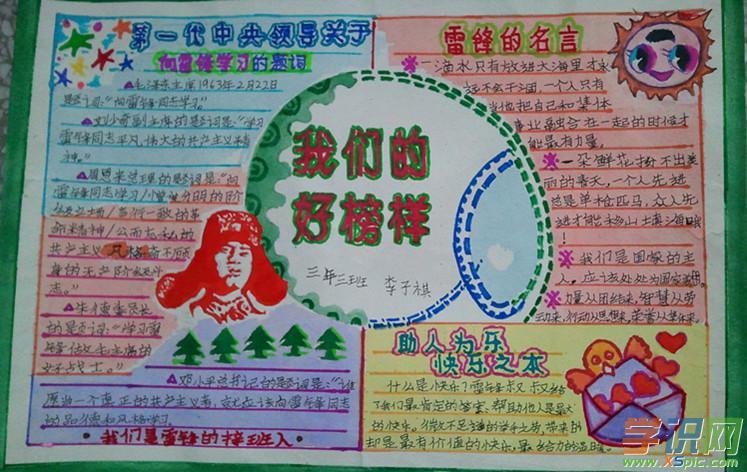 第一代中央领导关于
向雷锋学习的题词
毛泽东主席1963年2月22日
题词:“向雷锋同志学习。”
刘少奇副主席的题词是:“学习
雷锋同志平凡,伟大的共产主义精
神。”
周恩来总理的题词是:“向
雷锋同志学习/憎爱分明的阶
级立场/言行一致的革
命精神/公而忘私的
共产主义风格奋不顾
身的无产阶级斗
志。”
朱德委员长
的题词:“学习雷
锋做毛主席的
好战士。”
邓小平总书记的题词是:“谁
愿当一个真正的共产主义者,就应该向雷锋同志
的品德和风格学习。
我们是雷锋的接班人
我们的
好榜样
三年三班 李子祺
雷锋的名言
一滴水只有放进大海里才永
远不会干涸,一个人只有
当他把自己和集体
事业融合在一起的时候才
能最有力量。
一朵鲜花扮不出美
丽的春天,一个人先进
总是单枪匹马,众人先
进才能移山填海
我们是国家的主
人,应该处处为国家着想。
力量从团结来,智慧从劳
动来,行动从思想来,荣誉从集体来
助人为乐
快乐之本
什么是快乐?雷锋叔叔给
了我们最肯定的答案,帮助他人是最大
的快乐。微不足道的举手之劳,带来的
却是最有价值的快乐,最给力的温暖。
学识网
www.XSpic.com